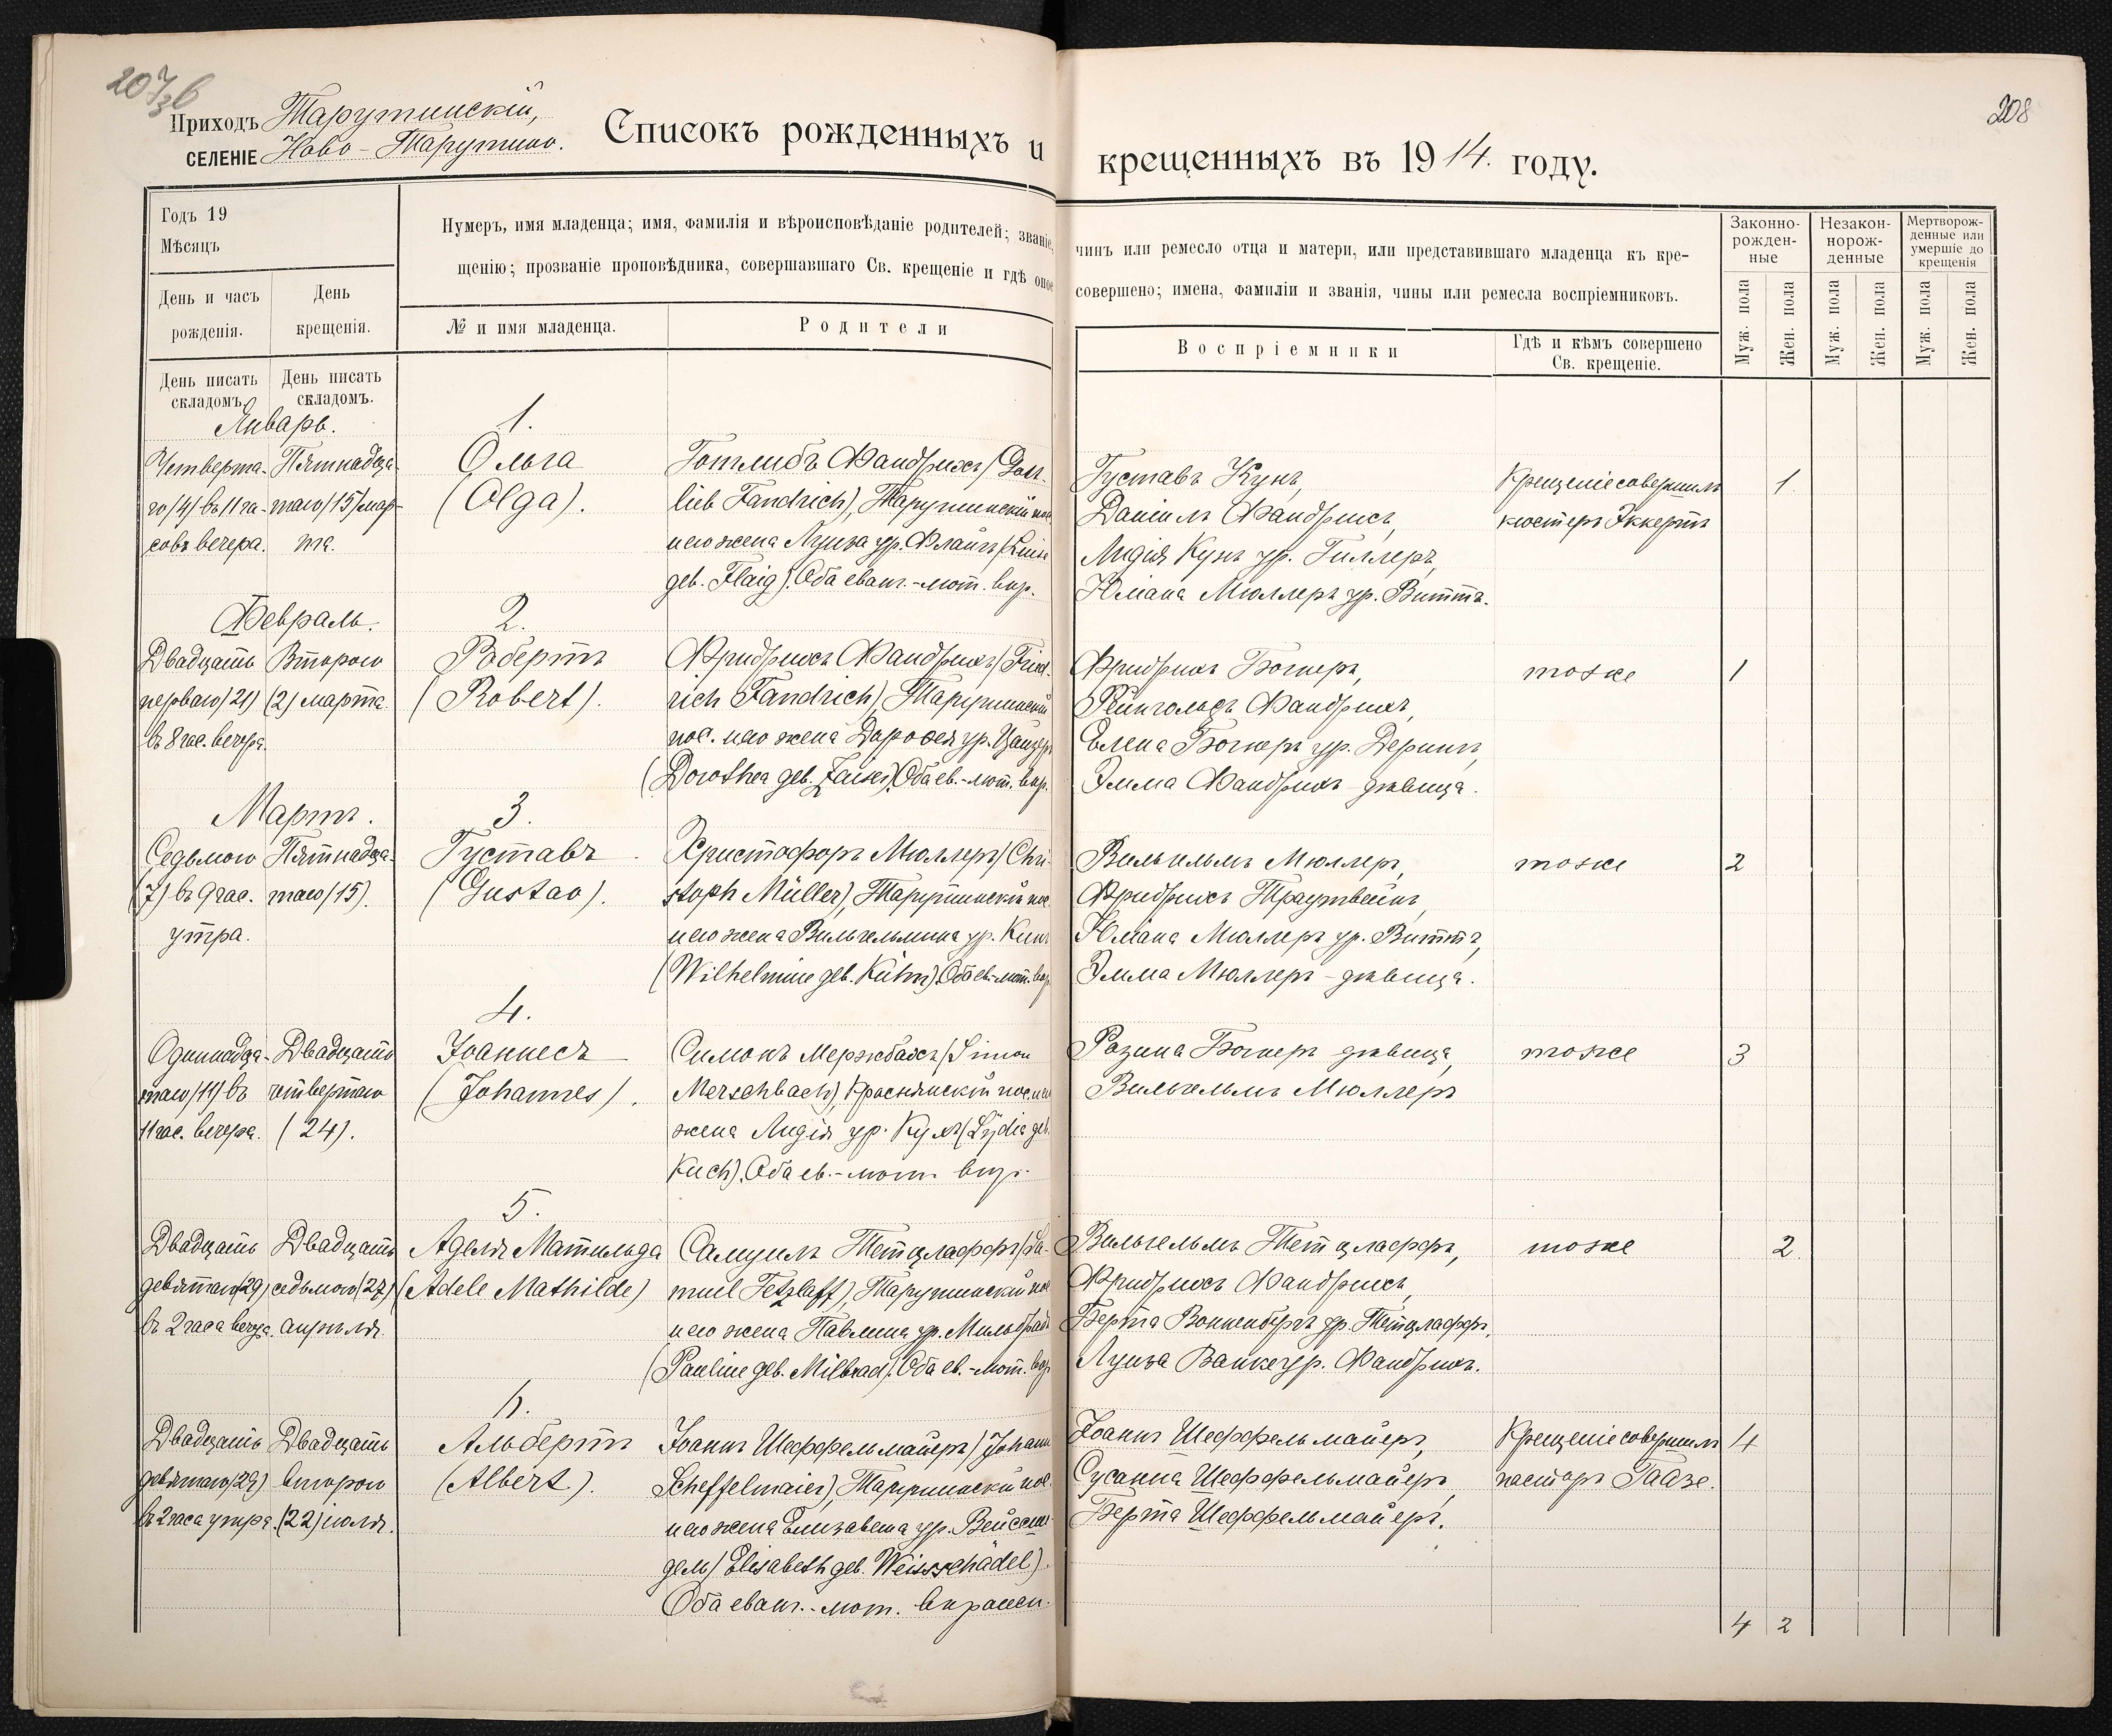 207 зб
208
Приходъ Тарутинскій,
СЕЛЕНІЕ Ново-Тарутино.
Списокъ рожденныхъ и крещенныхъ въ 1914. году.
Годъ 19
Мѣсяцъ
День и часъ рожденія.
День крещенія.
Нумеръ, имя младенца; имя, фамилія и вѣроисповѣданіе родителей; званіе, чинъ или ремесло отца и матери, или представившаго младенца къ кре-
щенію; прозваніе проповѣдника, совершавшаго Св. крещеніе и гдѣ оное совершено; имена, фамиліи и званія, чины или ремесла воспріемниковъ.
№ и имя младенца.
Родители
Воспріемники
Гдѣ и кѣмъ совершено
Св. крещеніе.
Законно-
рожден-
ные
Незакон-
норож-
денные
Мертворож-
денные или
умершіе до
крещенія
Муж. пола
Жен. пола
Муж. пола
Жен. пола
Муж. пола
Жен. пола
День писать
складомъ.
День писать
складомъ.
Январь.
1.
Четверта-
го (4) въ 11 ча-
совъ вечера.
Пятнадца-
таго (15) мар-
та.
Ольга
(Olga).
Готлибъ Фандрихъ (Gott-
lieb Fandrich), Тарутинскій пос.
и его жена Луиза ур. Флайгъ (Luise
geb. Flaig). Оба еванг.-лют. вѣр.
Густавъ Кунъ,
Даніилъ Фандрихъ,
Лидія Кунъ ур. Гиллеръ,
Юліана Мюллеръ ур. Виттъ.
Крещеніе совершилъ
кюстеръ Эккертъ
1
Февраль.
2.
Двадцать
перваго (21)
въ 8 час. вечера.
Второго
(2) марта.
Робертъ
(Robert).
Фридрихъ Фандрихъ (Fried-
rich Fandrich), Тарутинскій
пос. и его жена Доротея ур. Цайзеръ
(Dorothea geb. Zaiser). Оба ев.-лют. вѣр.
Фридрихъ Богнеръ,
Рейнгольдъ Фандрихъ,
Елена Богнеръ ур. Дерингъ,
Эмма Фандрихъ - дѣвица.
тоже
1
Мартъ.
3.
Седьмого
(7) въ 9 час.
утра.
Пятнадца-
таго (15).
Густавъ
(Gustav).
Христофоръ Мюллеръ (Chri-
stoph Müller), Тарутинскій пос.
и его жена Вильгельмина ур. Кинъ
(Wilhelmine geb. Kühn). Оба ев.-лют. вѣр.
Вильгельмъ Мюллеръ,
Фридрихъ Траутвейнъ,
Юліана Мюллеръ ур. Виттъ,
Эмма Мюллеръ - дѣвица.
тоже
2
4.
Одиннадца-
таго (11) въ
11 час. вечера.
Двадцать
четвертаго
(24).
Іоаннесъ
(Johannes).
Симонъ Мершбахъ (Simon
Merschbach), Краснянскій пос. и его
жена Лидія ур. Кухъ (Lydia geb.
Kuch). Оба ев.-лют. вѣр.
Розина Богнеръ дѣвица,
Вильгельмъ Мюллеръ
тоже
3
5.
Двадцать
девятаго (29)
въ 2 часа вечера.
Двадцать
седьмого (27)
апрѣля.
Аделя Матильда
(Adele Mathilde)
Самуилъ Тетцлаффъ (Sa-
muel Tetzlaff), Тарутинскій пос.
и его жена Павлина ур. Мильбрадъ
(Pauline geb. Milbrad). Оба ев.-лют. вѣр.
Вильгельмъ Тетцлаффъ,
Фридрихъ Фандрихъ,
Берта Вонненбергъ ур. Тетцлаффъ,
Луиза Ванке ур. Фандрихъ.
тоже
2.
6.
Двадцать
девятаго (29)
въ 2 часа утра.
Двадцать
второго
(22) іюля.
Альбертъ
(Albert).
Іоаннъ Шеффельмайеръ (Johann
Scheffelmaier), Тарутинскій пос.
и его жена Елизавета ур. Вейсше-
дель (Elisabeth geb. Weissschädel).
Оба еванг.-лют. вѣроисп.
Іоаннъ Шеффельмайеръ,
Сусанна Шеффельмайеръ,
Берта Шеффельмайеръ.
Крещеніе совершилъ
пасторъ Гаазе.
4
4 2